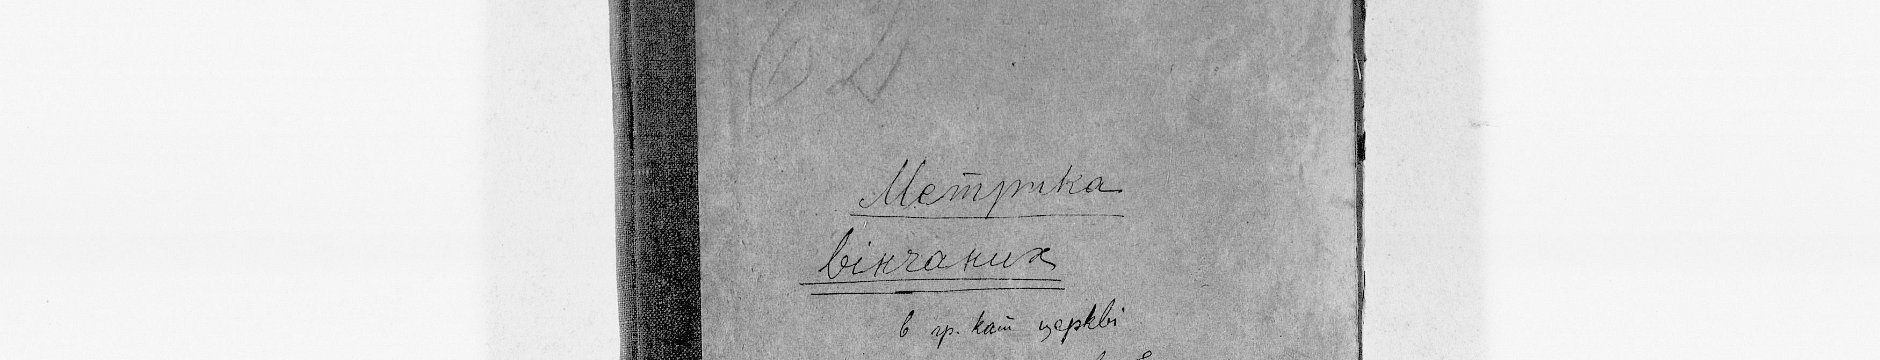 62
Метрика
вінчаних
в гр. кат церкві